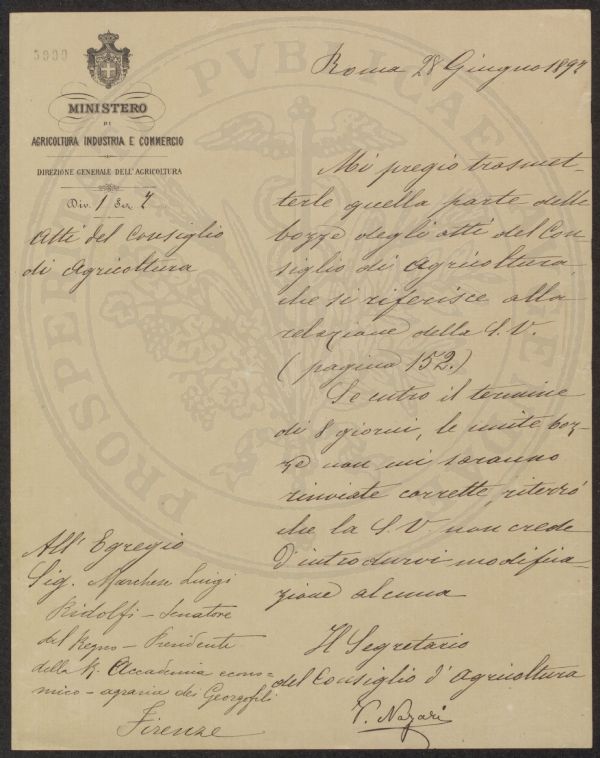 5990
MINISTERO
DI
AGRICOLTURA INDUSTRIA E COMMERCIO
DIREZIONE GENERALE DELL'AGRICOLTURA
Div. 1 Sez. 7
Atti del Consiglio
di Agricoltura
Roma 28 Giugno 1897
Mi pregio trasmet-
terle quella parte delle
bozze degli atti del Con-
siglio di Agricoltura
che si riferisce alla
relazione della S.V.
(pagina 152.)
Se entro il termine
di 8 giorni, le unite boz-
ze non mi saranno
rinviate corrette, riterrò
che la S.V. non crede
d'introdurvi modifica-
zione alcuna
Il Segretario
del Consiglio d'Agricoltura
V. Nazari
All'Egregio
Sig. Marchese Luigi
Ridolfi - Senatore
del Regno - Presidente
della R. Accademia econo-
mico - agraria dei Georgofili
Firenze
PROSPERITATI PVBLICAE